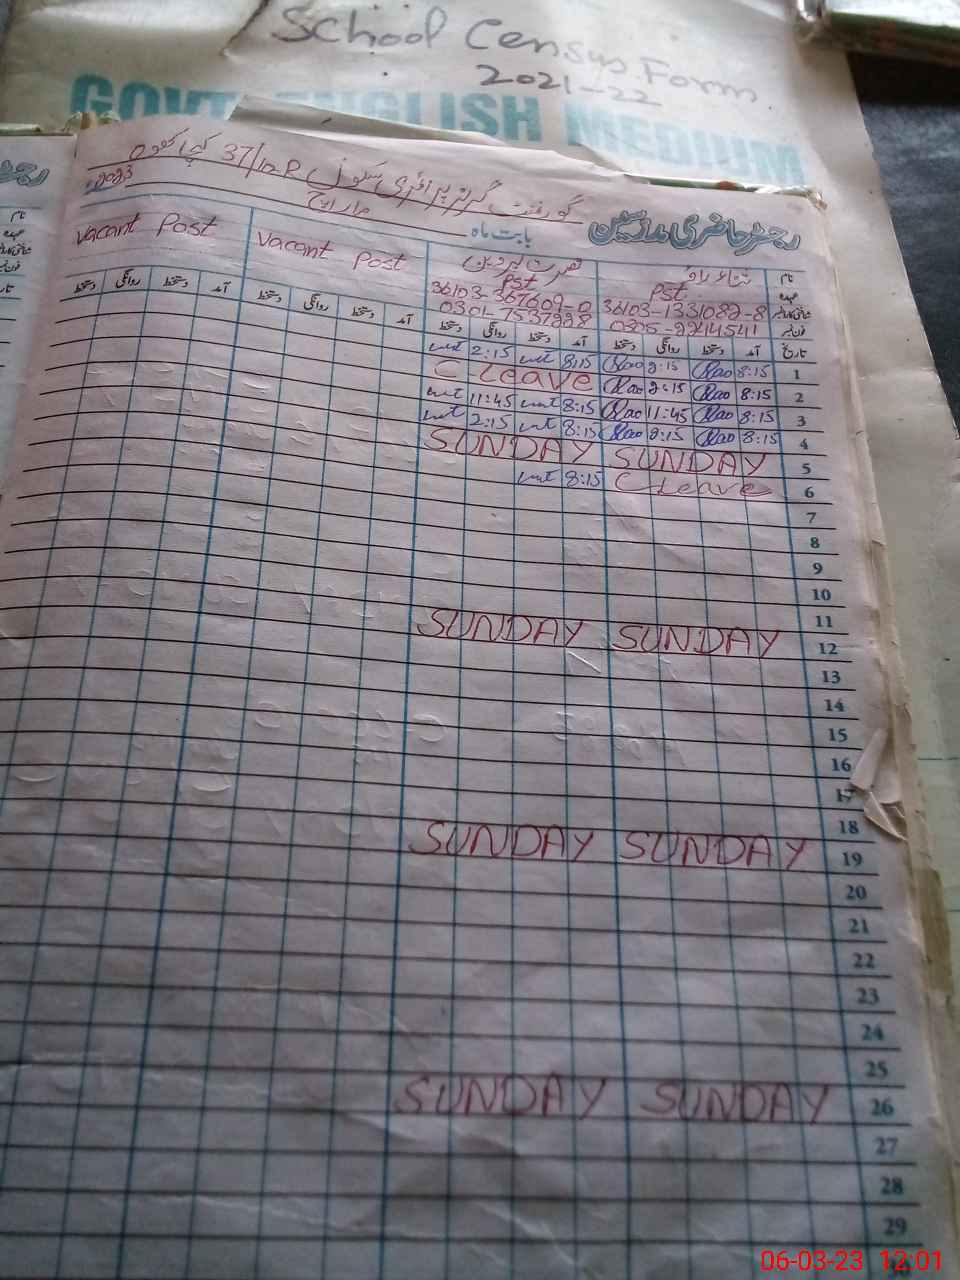 School Census Form
2021-22
GOVT. ENGLISH MEDIUM
گورنمنٹ گرلز پرائمری سکول 37/10-R کچا کھوہ
رجسٹر حاضری ملازمین بابت ماہ مارچ 2023
نام
عہدہ
فون نمبر
Vacant Post Vacant Post
Pst Pst.
36103-367609-0 36103-1331082-8
0301-7537228 0305-2244541
تاریخ آمد دستخط روانگی دستخط آمد دستخط روانگی دستخط آمد دستخط روانگی دستخط آمد دستخط روانگی دستخط
2:15 8:15 Rao 2:15 Rao 8:15 1
C Leave Rao 2:15 Rao 8:15 2
11:45 8:15 Rao 11:45 Rao 8:15 3
2:15 8:15 Rao 2:15 Rao 8:15 4
SUNDAY SUNDAY 5
8:15 C Leave 6
7
8
9
10
11
SUNDAY SUNDAY 12
13
14
15
16
17
18
SUNDAY SUNDAY 19
20
21
22
23
24
25
SUNDAY SUNDAY 26
27
28
29
06-03-23 12:01